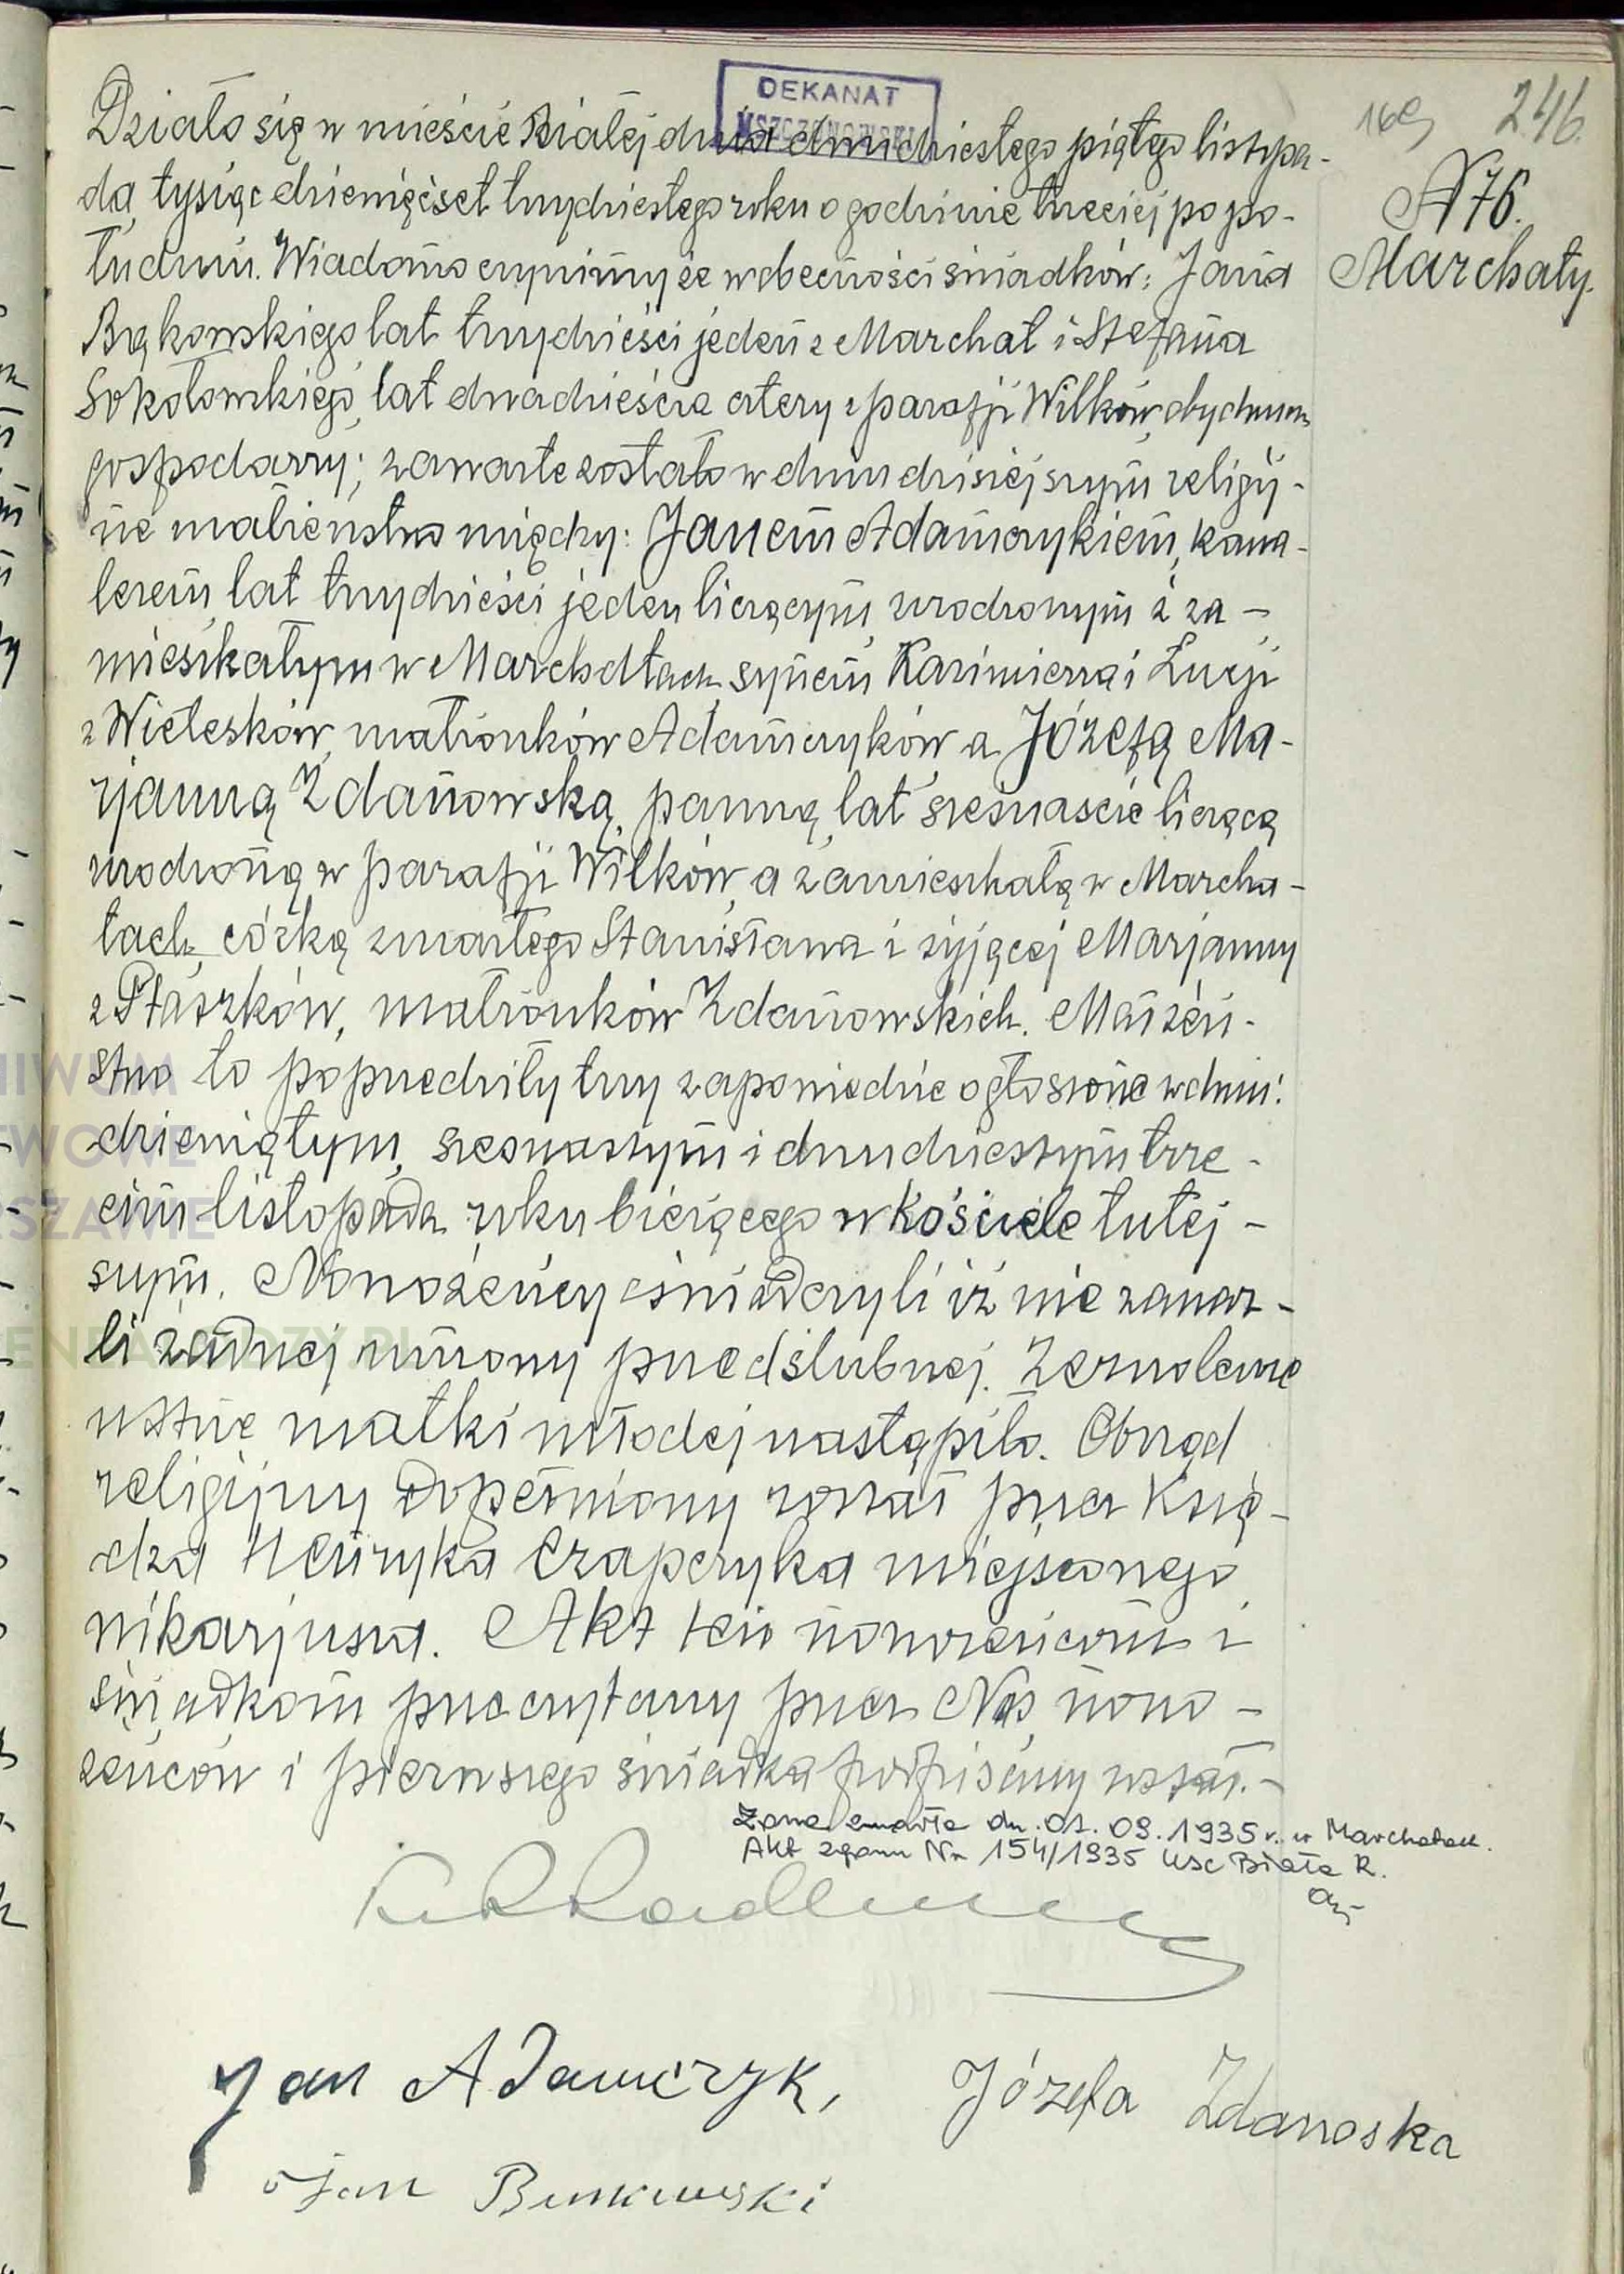 DEKANAT
MSZCZONOWSKI
246.
N 76.
Marchaty.
Działo się w mieście Białej dnia dwudziestego piątego listopa-
da, tysiąc dziewięćset trzydziestego roku o godzinie trzeciej po po-
łudniu. Wiadomo czynimy że w obecności świadków: Jana
Bąkowskiego lat trzydzieści jeden z Marchat i Stefana
Sokołowskiego, lat dwadzieścia cztery z parafji Wilków, obydwuch
gospodarzy; zawarte zostało w dniu dzisiejszym religij-
ne małżeństwo między: Janem Adamczykiem, kawa-
lerem, lat trzydzieści jeden liczącym, urodzonym i za-
mieszkałym w Marchatach, synem Kazimierza i Łucji
z Wietesków, małżonków Adamczyków a Józefą Ma-
rjanną Zdanowską, panną, lat szesnaście liczącą
urodzoną w parafji Wilków, a zamieszkałą w Marcha-
tach, córką zmarłego Stanisława i żyjącej Marjanny
z Ptaszków, małżonków Zdanowskich. Małżeń-
stwo to poprzedziły trzy zapowiedzie ogłoszone w dniu:
dziewiątym, szesnastym i dwudziestym trze-
cim listopada roku bieżącego w kościele tutej-
szym. Nowożeńcy oświadczyli iż nie zawar-
li żadnej umowy przedślubnej. Zezwolenie
ustne matki młodej nastąpiło. Obrząd
religijny dopełniony został przez Księ-
dza Henryka Czapczyka miejscowego
wikarjusza. Akt ten nowożeńcom i
świadkom przeczytany przez Nas, nowo-
żeńców i pierwszego świadka podpisany został.-
Żona zmarła dn. 01. 09. 1935 r. w Marchatach.
Akt zgonu Nr 154/1935 USC Biała R.
Jan Adamczyk, Józefa Zdanoska
Jan Bunkowski